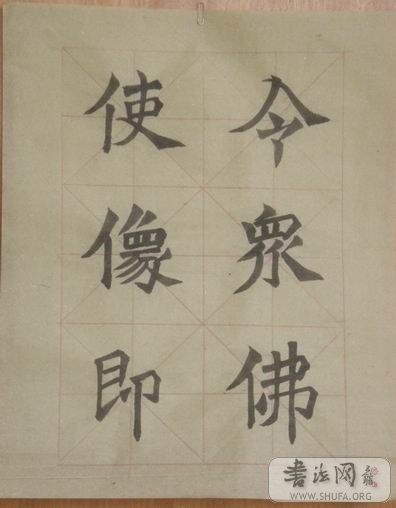 今眾佛
使像即
书法网
WWW.SHUFA.ORG